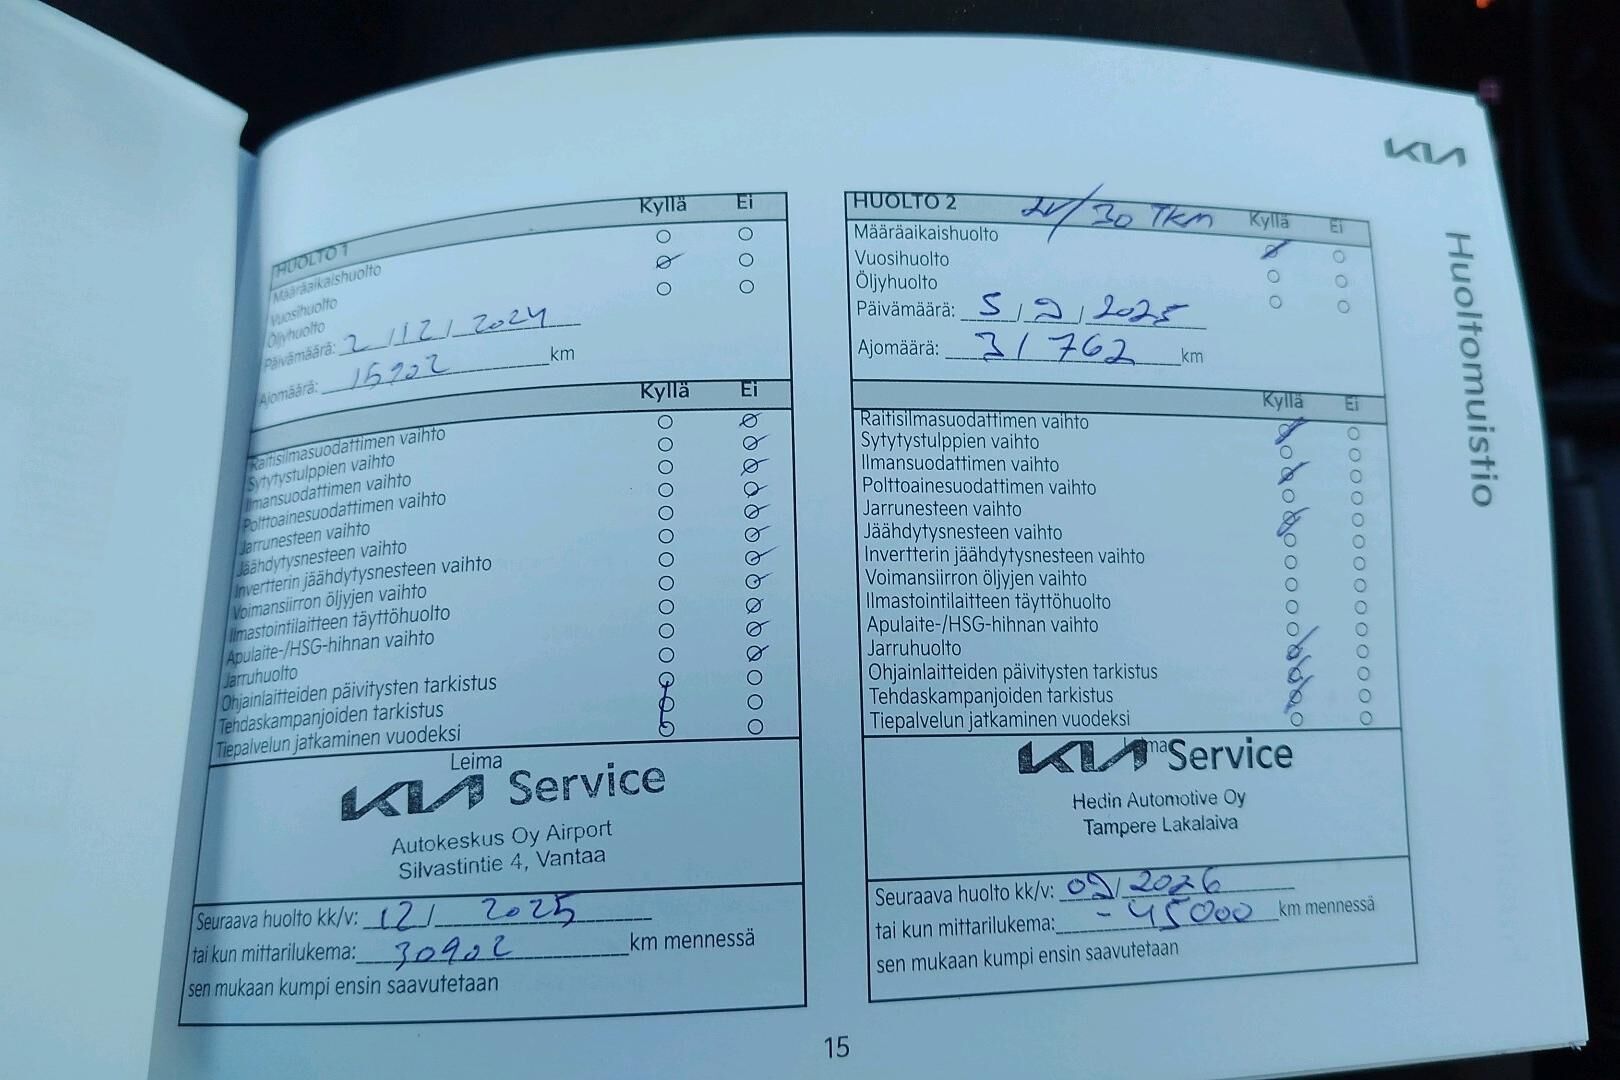 KIA
Huoltomuistio
HUOLTO 1 Kyllä Ei
Määräaikaishuolto
Vuosihuolto
Öljyhuolto
Päivämäärä: 2 / 12 / 2024
Ajomäärä: 15902 km
Kyllä Ei
Raitisilmasuodattimen vaihto
Sytytystulppien vaihto
Ilmansuodattimen vaihto
Polttoainesuodattimen vaihto
Jarrunesteen vaihto
Jäähdytysnesteen vaihto
Invertterin jäähdytysnesteen vaihto
Voimansiirron öljyjen vaihto
Ilmastointilaitteen täyttöhuolto
Apulaite-/HSG-hihnan vaihto
Jarruhuolto
Ohjainlaitteiden päivitysten tarkistus
Tehdaskampanjoiden tarkistus
Tiepalvelun jatkaminen vuodeksi
Leima
KIA Service
Autokeskus Oy Airport
Silvastintie 4, Vantaa
Seuraava huolto kk/v: 12 / 2025
tai kun mittarilukema: 30902 km mennessä
sen mukaan kumpi ensin saavutetaan
HUOLTO 2 2V/30 TKM Kyllä Ei
Määräaikaishuolto
Vuosihuolto
Öljyhuolto
Päivämäärä: 5 / 9 / 2025
Ajomäärä: 31762 km
Kyllä Ei
Raitisilmasuodattimen vaihto
Sytytystulppien vaihto
Ilmansuodattimen vaihto
Polttoainesuodattimen vaihto
Jarrunesteen vaihto
Jäähdytysnesteen vaihto
Invertterin jäähdytysnesteen vaihto
Voimansiirron öljyjen vaihto
Ilmastointilaitteen täyttöhuolto
Apulaite-/HSG-hihnan vaihto
Jarruhuolto
Ohjainlaitteiden päivitysten tarkistus
Tehdaskampanjoiden tarkistus
Tiepalvelun jatkaminen vuodeksi
Leima
KIA Service
Hedin Automotive Oy
Tampere Lakalaiva
Seuraava huolto kk/v: 09 / 2026
tai kun mittarilukema: - 45000 km mennessä
sen mukaan kumpi ensin saavutetaan
15